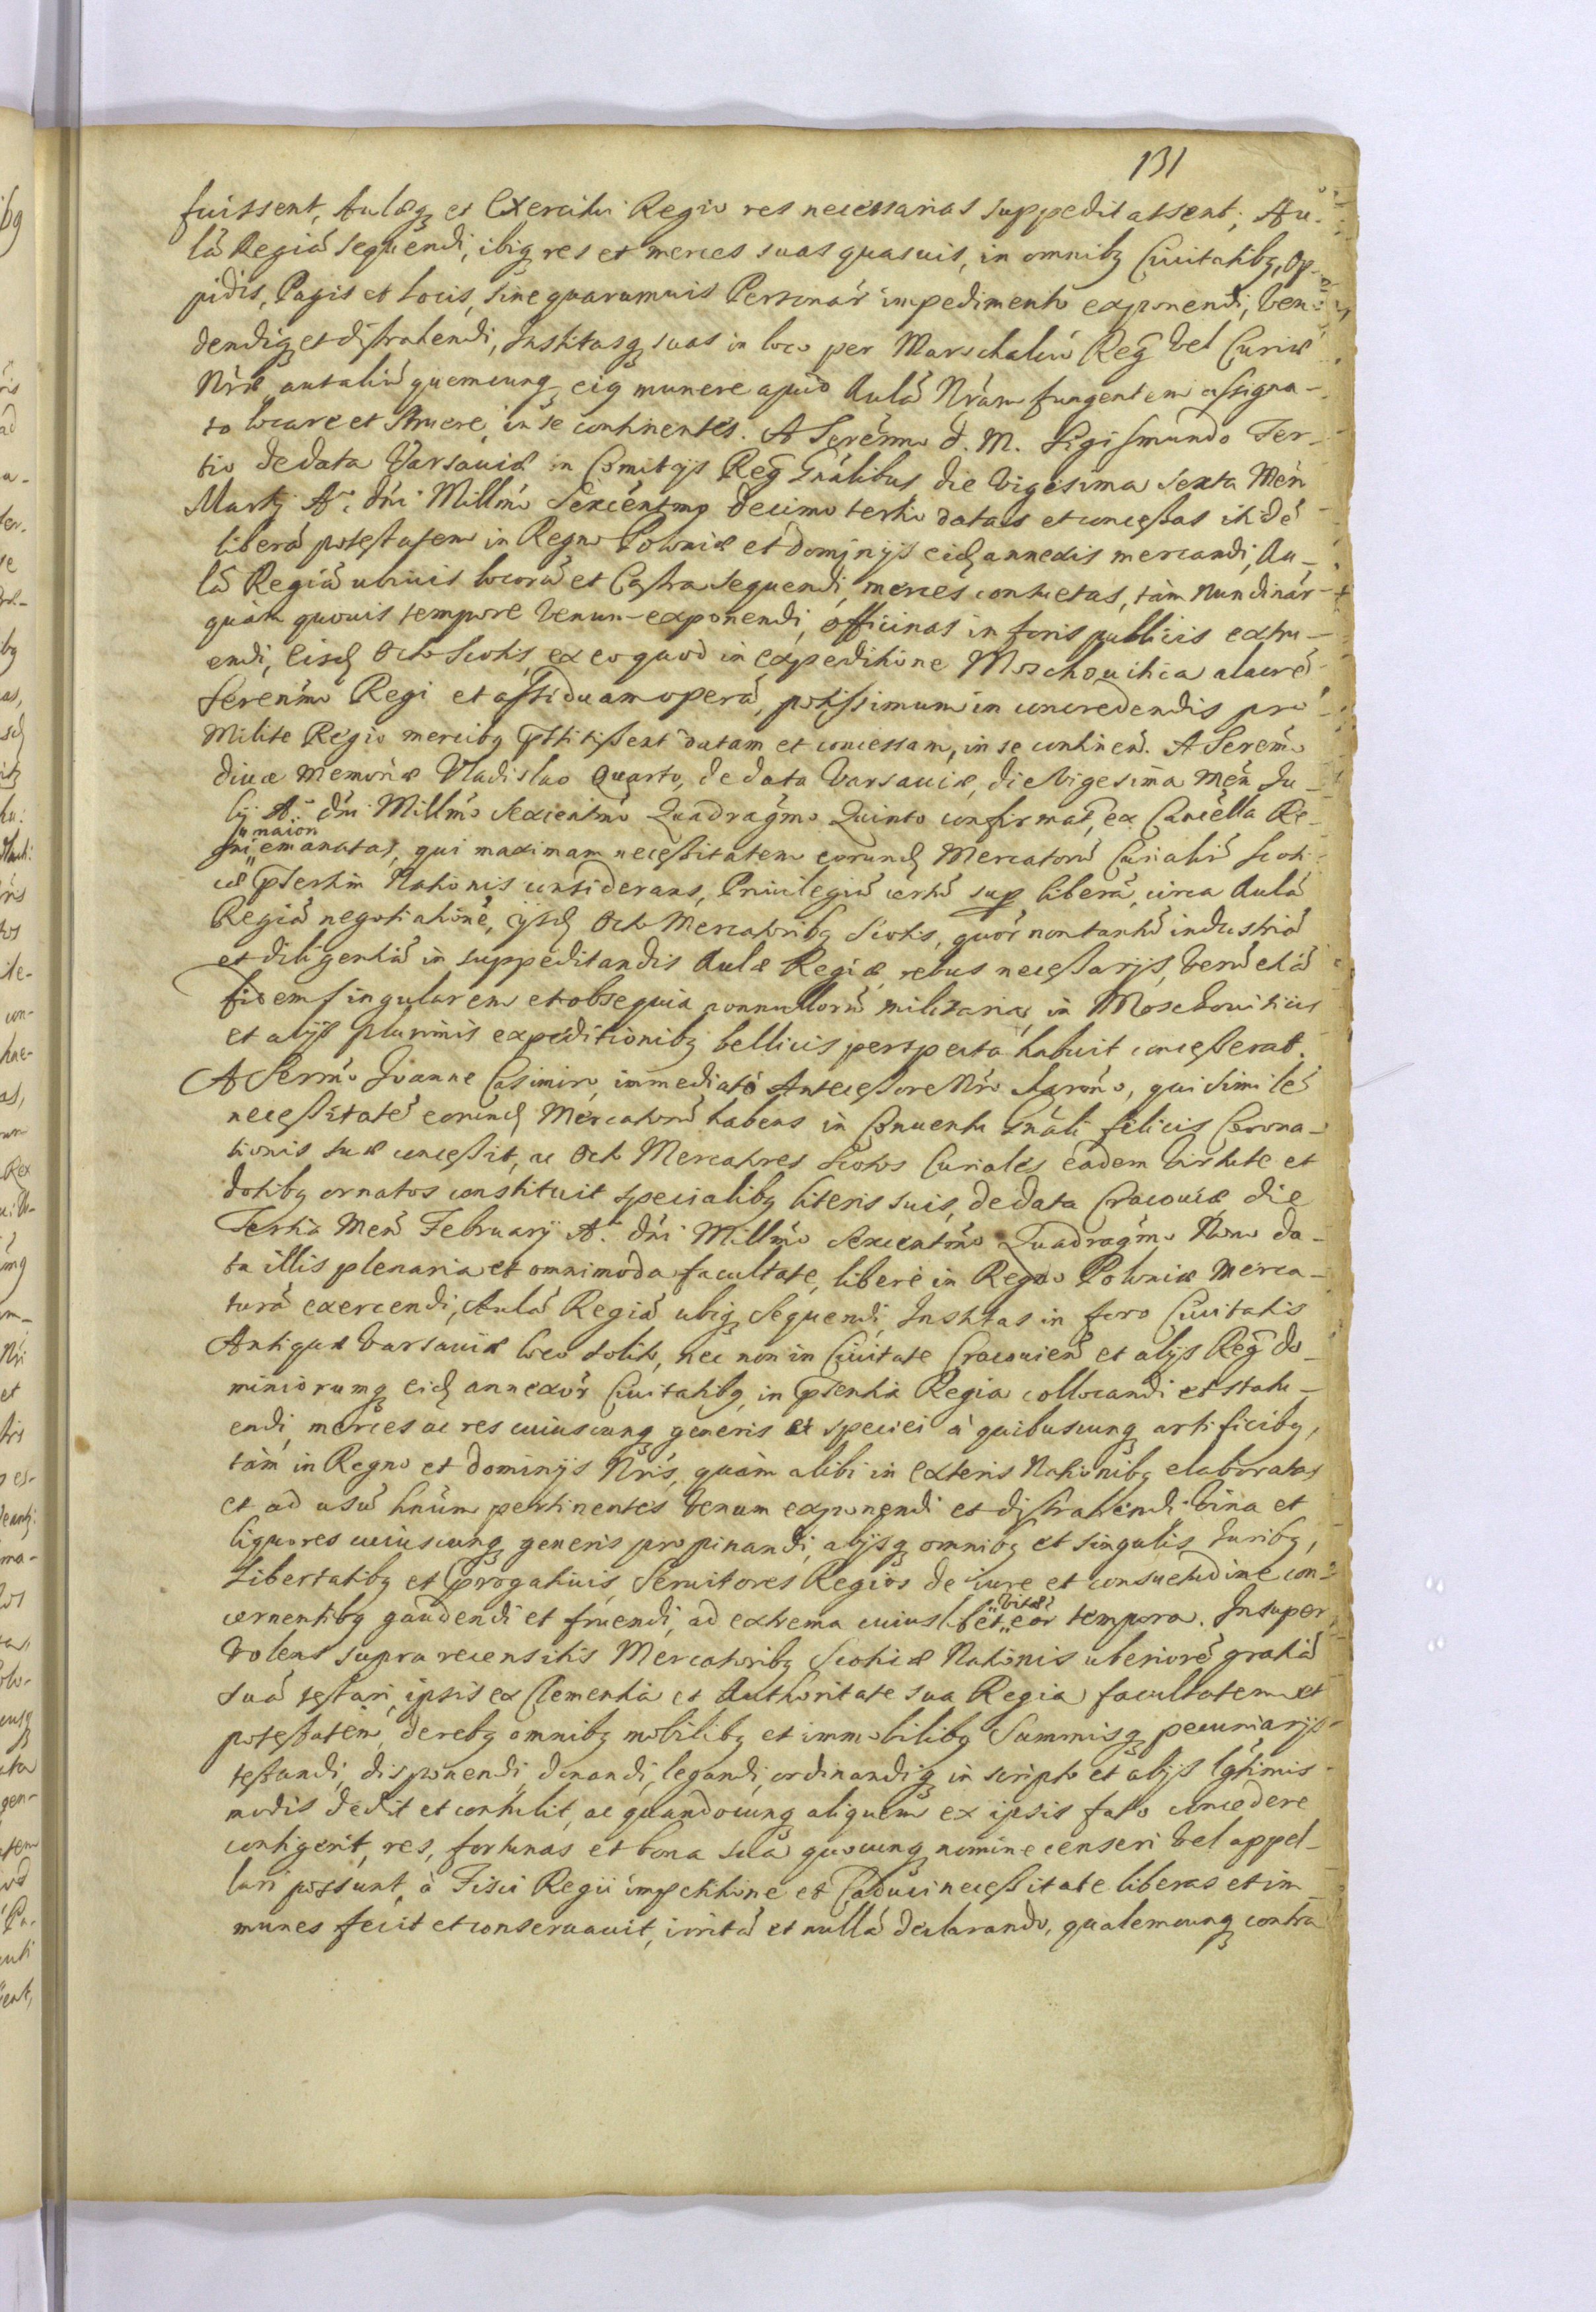 131
fuissent, Aulæq₃ et Exercitui Regio res necessarias suppeditassent; Au-
lã Regiã sequendi, ibiq₃ res et merces suas quasuis, in omnib₃ Ciuitatib₃, Op-
pidis, Pagis et Locis, sine quarumuis Personar̃ impedimento exponendi, Ven-
dendiq₃ et distrahendi, Institasq₃ suas in loco per Marschalcũ Regñ Vel Curiæ
Nr̃æ aut aliũ quemcunq₃ eiq₃ munere apud Aulã Nr̃am fungentem assigna-
to locare et struere, in se continentes. A Serẽnmo d. M. Sigismundo Ter-
tio de data Varsauiæ in Comitijs Regñ Gn̈alibus die Vigesima Sexta Men̄
Martij A. dni Millm̃o Sexcentm̃o decimo tertio datas et concessas itidẽ
liberã potestatem in Regno Poloniæ et dominijs eidꝫ annexis mercandi, Au-
lã Regiã ubiuis locorũ et Castra sequendi, merces consuetas, tàm Nundinar̃
quàm quouis tempore Venum-exponendi, officinas in foris publicis extru-
endi, Eisdꝫ Octo Scotis, ex eo quod in expeditione Moschouitica alacrẽ
Serenm̃o Regi et assiduam operã, potissimum in concredendis pro
Milite Regio mercib₃ p̃stitissent datam et concessam, in se continen̄. A Serenm̃o
diuæ memoriæ Vladislao Quarto, de data Varsauiæ, die Vigesima Men̄ Ju-
lij A. dni Millm̃o Sexcentm̃o Quadragm̃o Quinto confirmat, ex Cancella Re-
gni „emanatas, qui maximam necessitatem eorundꝫ Mercatorũ Curialiũ Scoti-
maiori
cæ p̃sertim Nationis considerans, Priuilegiũ certũ sup̱ liberã, circa Aulã
Regiã negotiationẽ, ijsdꝫ Octo Mercatorib₃ Scotis, quor̃ non tantũ industriã
et diligentiã in suppeditandis Aulæ Regiæ, rebus necessarijs, Verũ etiã
fidem singularem et obsequia nonnullorũ militaria, in Moschouiticis
et alijs plurimis expeditionib₃ bellicis perspecta habuit concesserat.
A Serm̃o Joanne Casimiro, immediato Antecessore Nr̃o Charm̃o, qui similẽ
necessitatẽ eorundꝫ Mercatorũ habens in Conuentu Gn̈ali felicis Corona-
tionis suæ concessit, ac Octo Mercatores Scotos Curiales eadem Virtute et
dotib₃ ornatos constituit specialib₃ literis suis, de data Cracouiæ die
Tertia Men̄ February A. dni Millm̃o Sexcentm̃o Quadragm̃o Nono da-
ta illis plenaria et omnimoda facultate, liberè in Regno Poloniæ Merca-
turã exercendi, Aulã Regiã ubiq₃ Sequendi, Institas in foro Ciuitatis
Antiquæ Varsauiæ loco solito, nec non in Ciuitate Cracouien̄ et alijs Regñ do-
miniorumq₃ eidꝫ annexor̃ Ciuitatib₃, in p̃sentia Regia collocandi et statu-
endi, merces ac res cuiuscunq₃ generis et speciei à quibuscunq₃ artificib₃,
tàm in Regno et dominijs Nr̃is, quàm alibi in exteris Nationib₃ elaboratas
et ad usũ hn̈um pertinentes Venum exponendi et distrahendi. Vina et
liquores cuiuscunq₃ generis propinandi, alijsq₃ omnib₃ et singulis Jurib₃,
Libertatib₃ et p̃rogatiuis Seruitores Regios de iure et consuetudine con-
cernentib₃ gaudendi et fruendi, ad extrema cuiuslibet „eor̃ tempora. Insuper
Vitæ
Volens supra recensitis Mercatorib₃ Scoticæ Nationis uberiorẽ gratiã
suã testari, ipsis ex Clementia et Authoritate sua Regia facultatem et
potestatem, de reb₃ omnib₃ mobilib₃ et immobilib₃ Summisq₃ pecuniarijs
testandi, disponendi, donandi, legandi, ordinandiq₃ in scripto et alijs lgtimis
modis dedit et contulit, ac quandocunq₃ aliquem ex ipsis fato concedere
contigerit, res, fortunas et bona sua quocunq₃ nomine censeri Vel appel-
lari possunt, à Fisci Regii impetitione et Caduci necessitate liberas et im-
munes fecit et conseruauit, irritã et nullã declarando, qualemcunq₃ contra